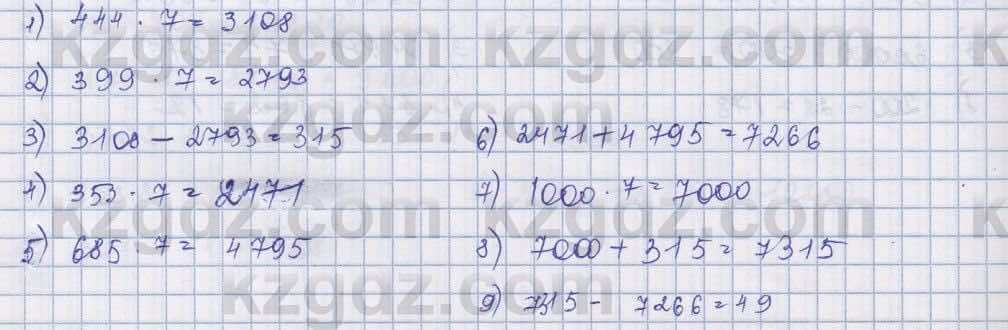 1) 444 · 7 = 3108
2) 399 · 7 = 2793
3) 3108 - 2793 = 315
4) 353 · 7 = 2471
5) 685 · 7 = 4795
6) 2471 + 4795 = 7266
7) 1000 · 7 = 7000
8) 7000 + 315 = 7315
9) 7315 - 7266 = 49
kzgdz.com kzgdz.com
kzgdz.com kzgdz.com
kzgdz.com kzgdz.com
kzgdz.com kzgdz.com
kzgdz.com kzgdz.com